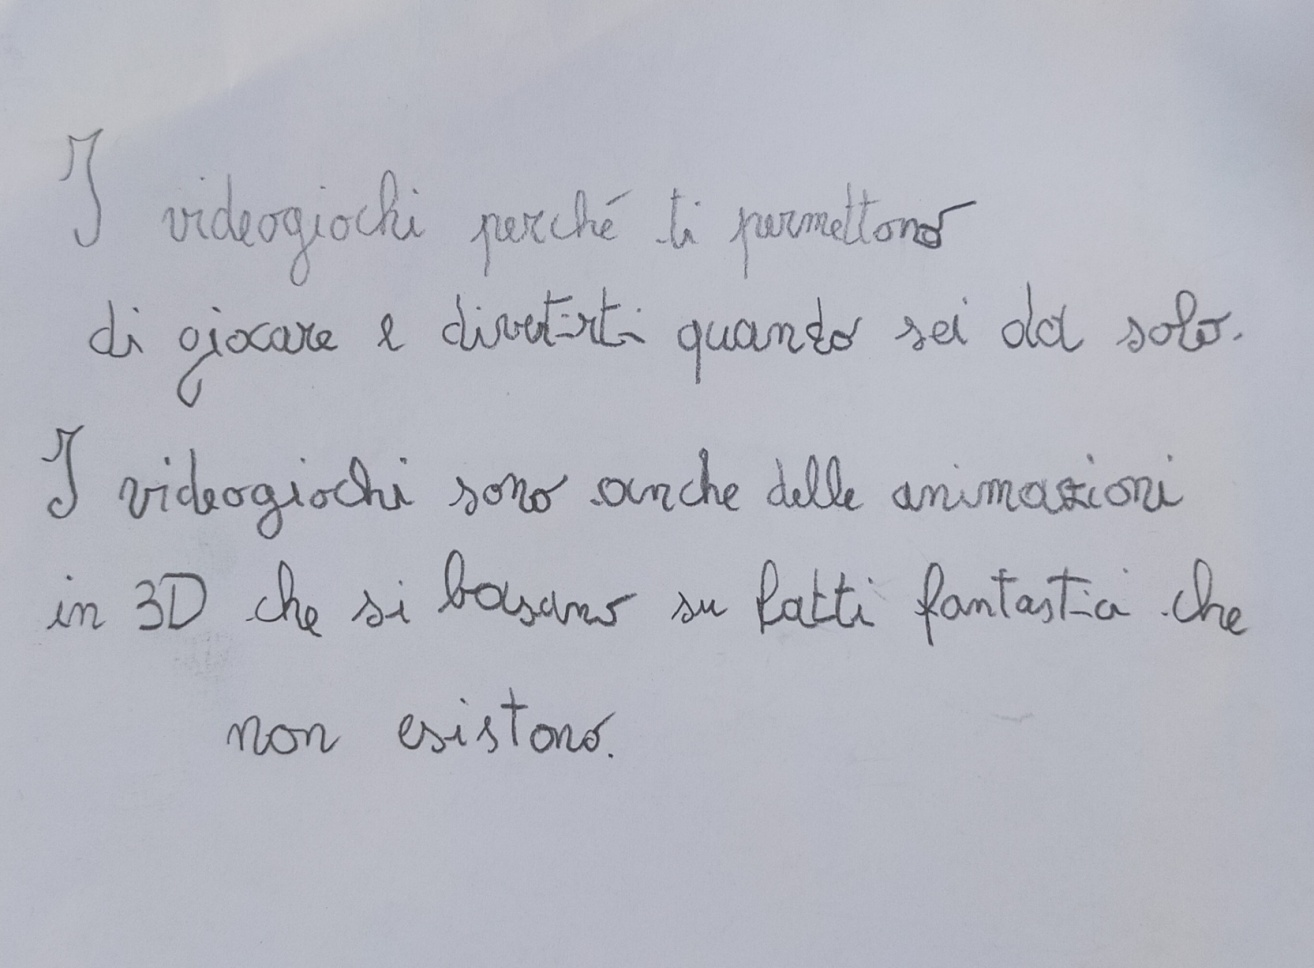 I videogiochi perché ti permettono
di giocare e divertirti quando sei da solo.
I videogiochi sono anche delle animazioni
in 3D che si basano su fatti fantastici che
non esistono.